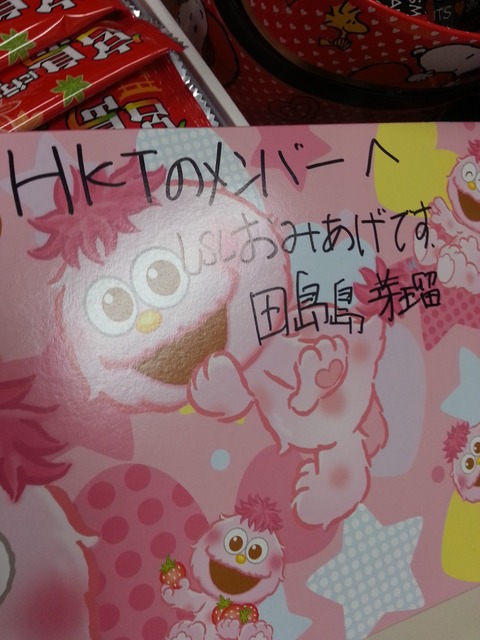 HKTのメンバーへ
おみあげです
田島島芽瑠